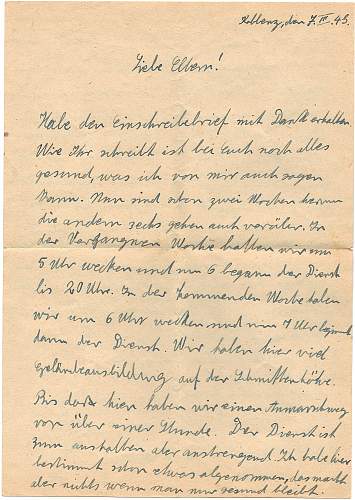 Koblenz, den 7. III. 45.
Liebe Eltern!
Habe den Einschreibebrief mit Dank erhalten.
Wie Ihr schreibt ist bei Euch noch alles
gesund, was ich von mir auch sagen
kann. Nun sind aber zwei Wochen herum
die andern sechs gehen auch vorüber. In
der Vergangnen Woche hatten wir um
5 Uhr wecken und um 6 begann der Dienst
bis 20 Uhr. In der kommenden Woche haben
wir um 6 Uhr wecken und um 7 Uhr beginnt
dann der Dienst. Wir haben hier viel
Geländeausbildung auf der Schmittenhöhe.
Bis dort hien haben wir einen Anmarschweg
von über einer Stunde. Der Dienst ist
zum aushalten aber anstrengend. Ich habe hier
bestimmt schon etwas abgenommen, das macht
aber nichts wenn man nur gesund bleibt.